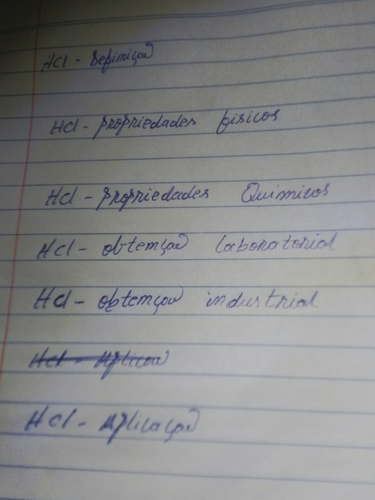 HCl - Definição
HCl - propriedades fisicos
HCl - propriedades Quimicos
HCl - obtenção laboratorial
HCl - obtenção industrial
HCl - Aplicação